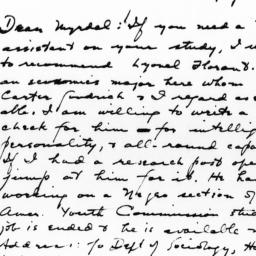 Dear Myrdal: If you need a
assistant on your study, I w
to recommend Lyonel Florant.
an economics major here whom
Carter Goodrich & I regard as
able. I am willing to write a
check for him — for intellig
personality, & all-round capa
If I had a research post ope
jump at him for it. He ha
working on a Negro section of
Amer. Youth Commission stud
job is ended & he is available
Address: c/o Dep't of Sociology, Ho